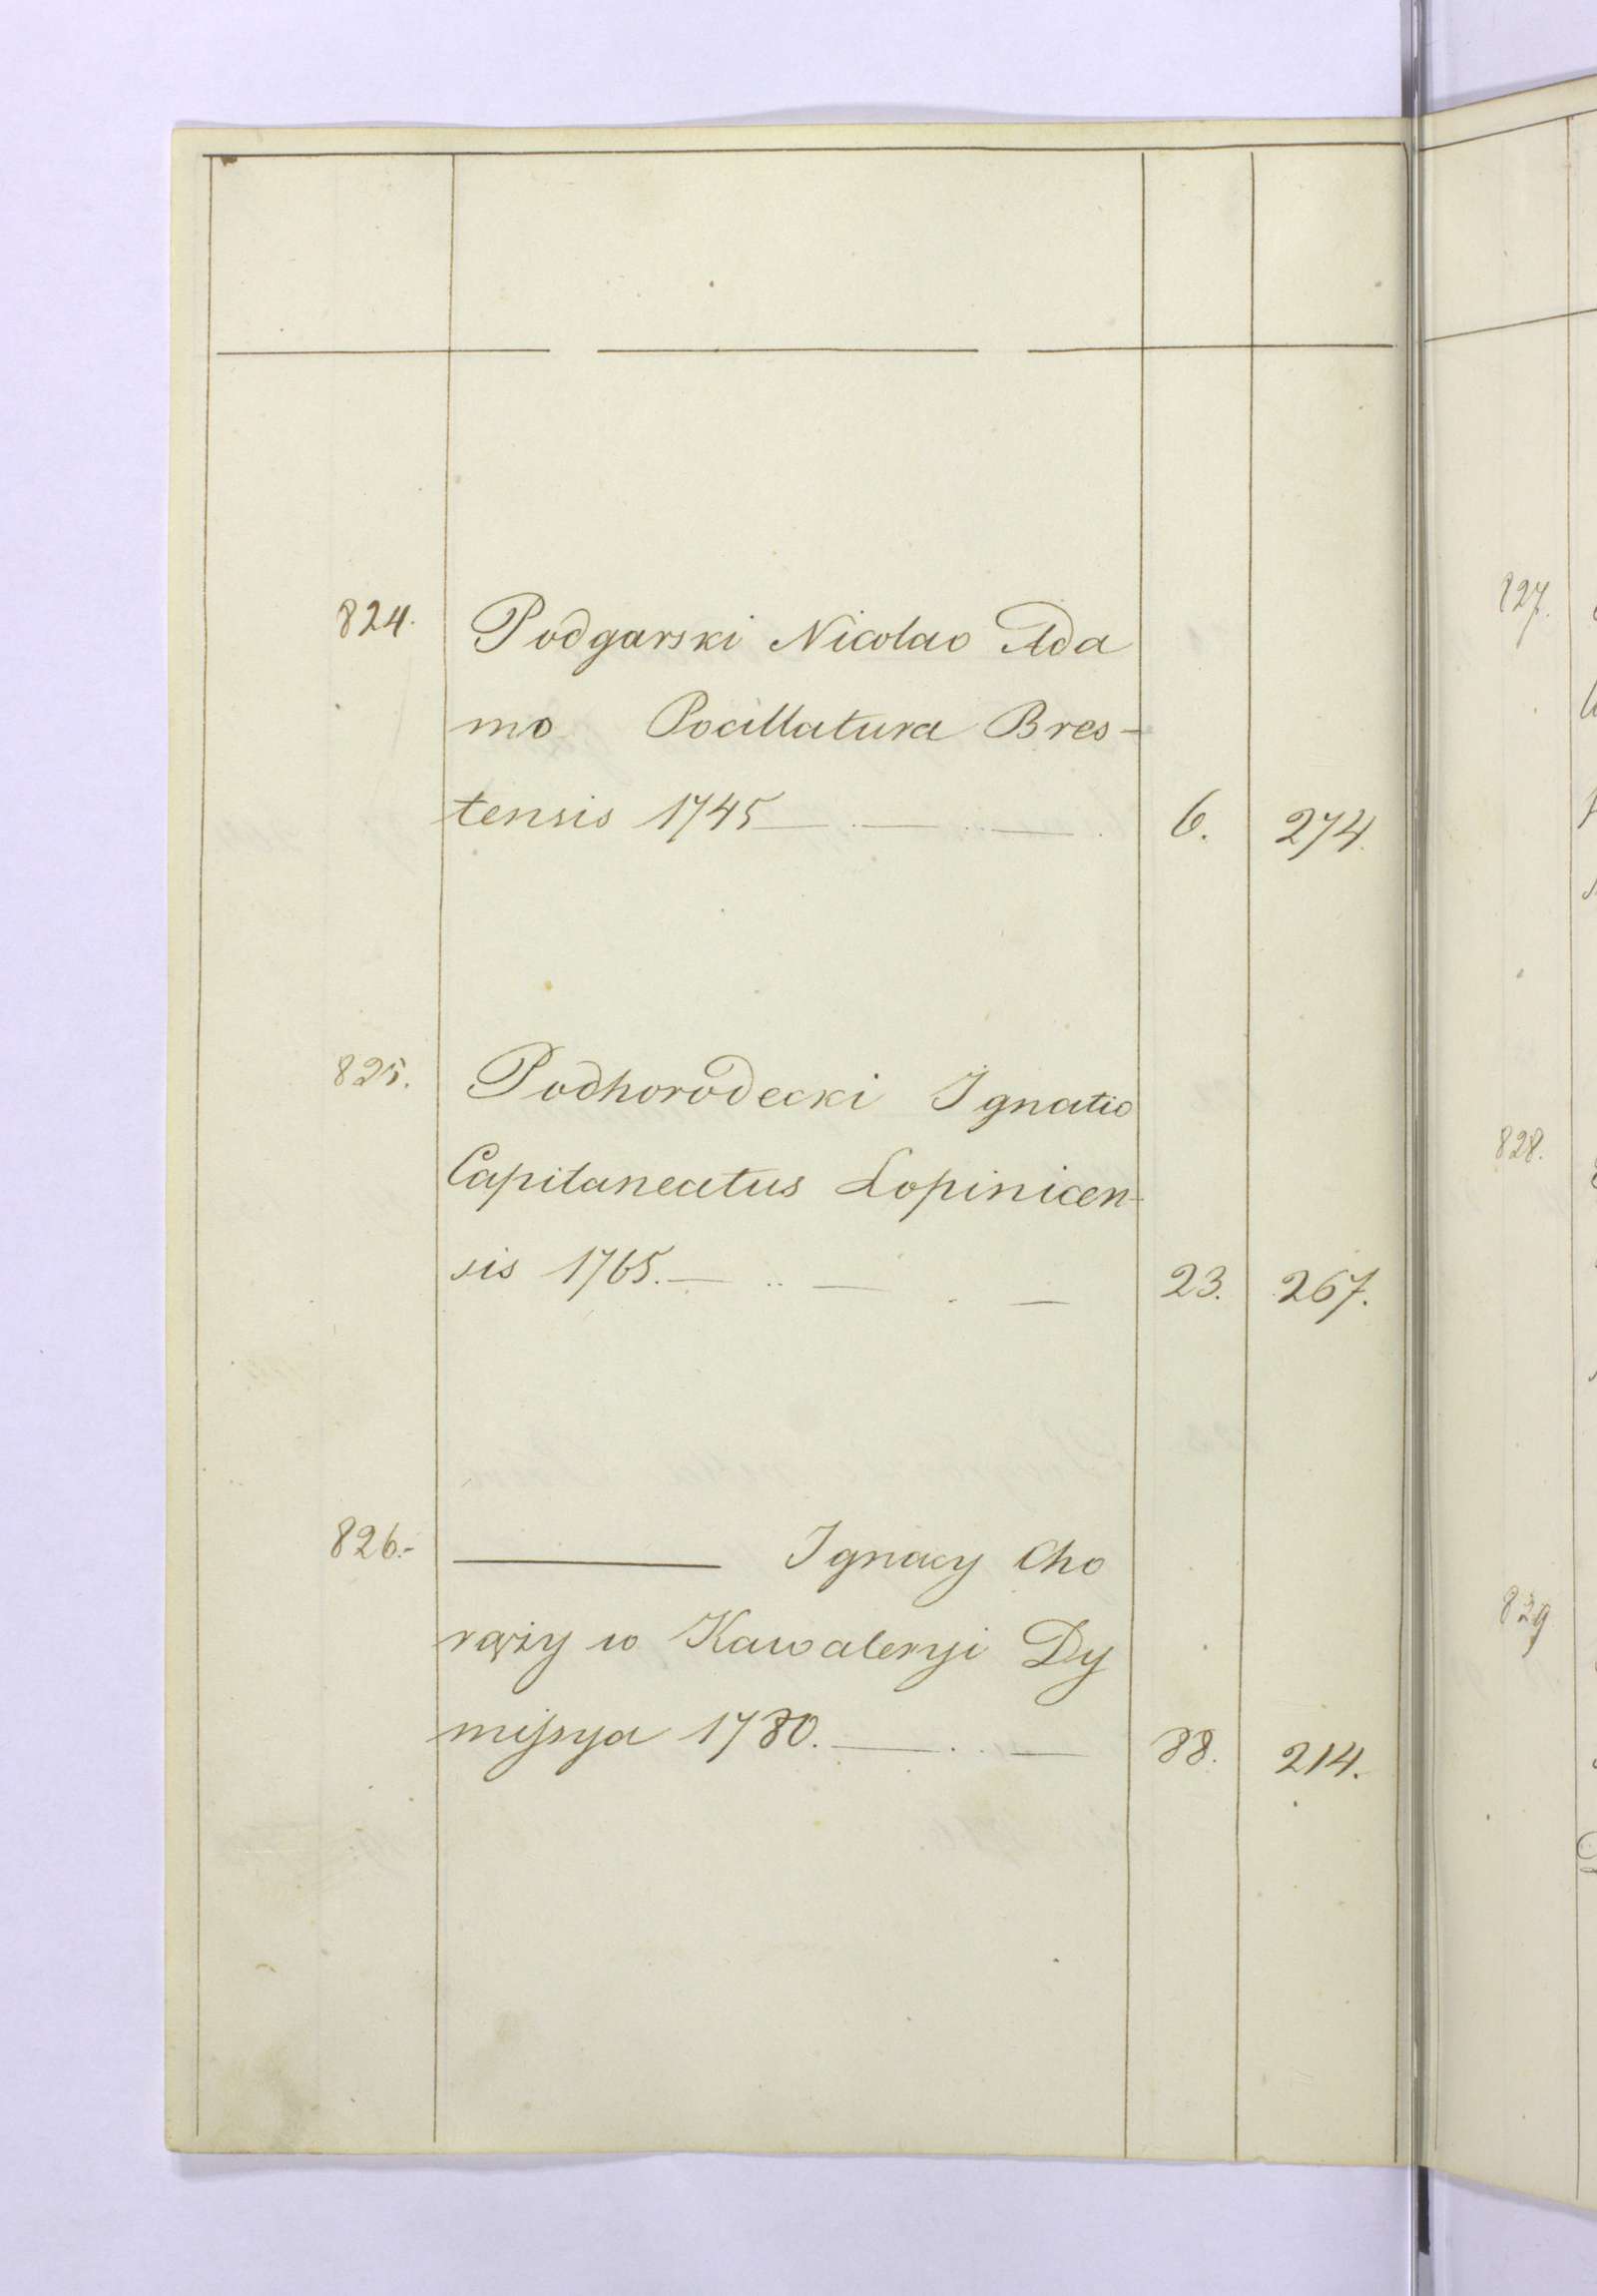 824. Podgarski Nicolao Ada
mo Pocillatura Bres-
tensis 1745 6. 274.
825. Podhorodecki Ignatio
Capitaneatus Łopinicen-
sis 1765. 23. 267.
826.- Ignacy Cho
rąży w Kawaleryi Dy
mijsya 1780. 88. 214.
827.
828.
829